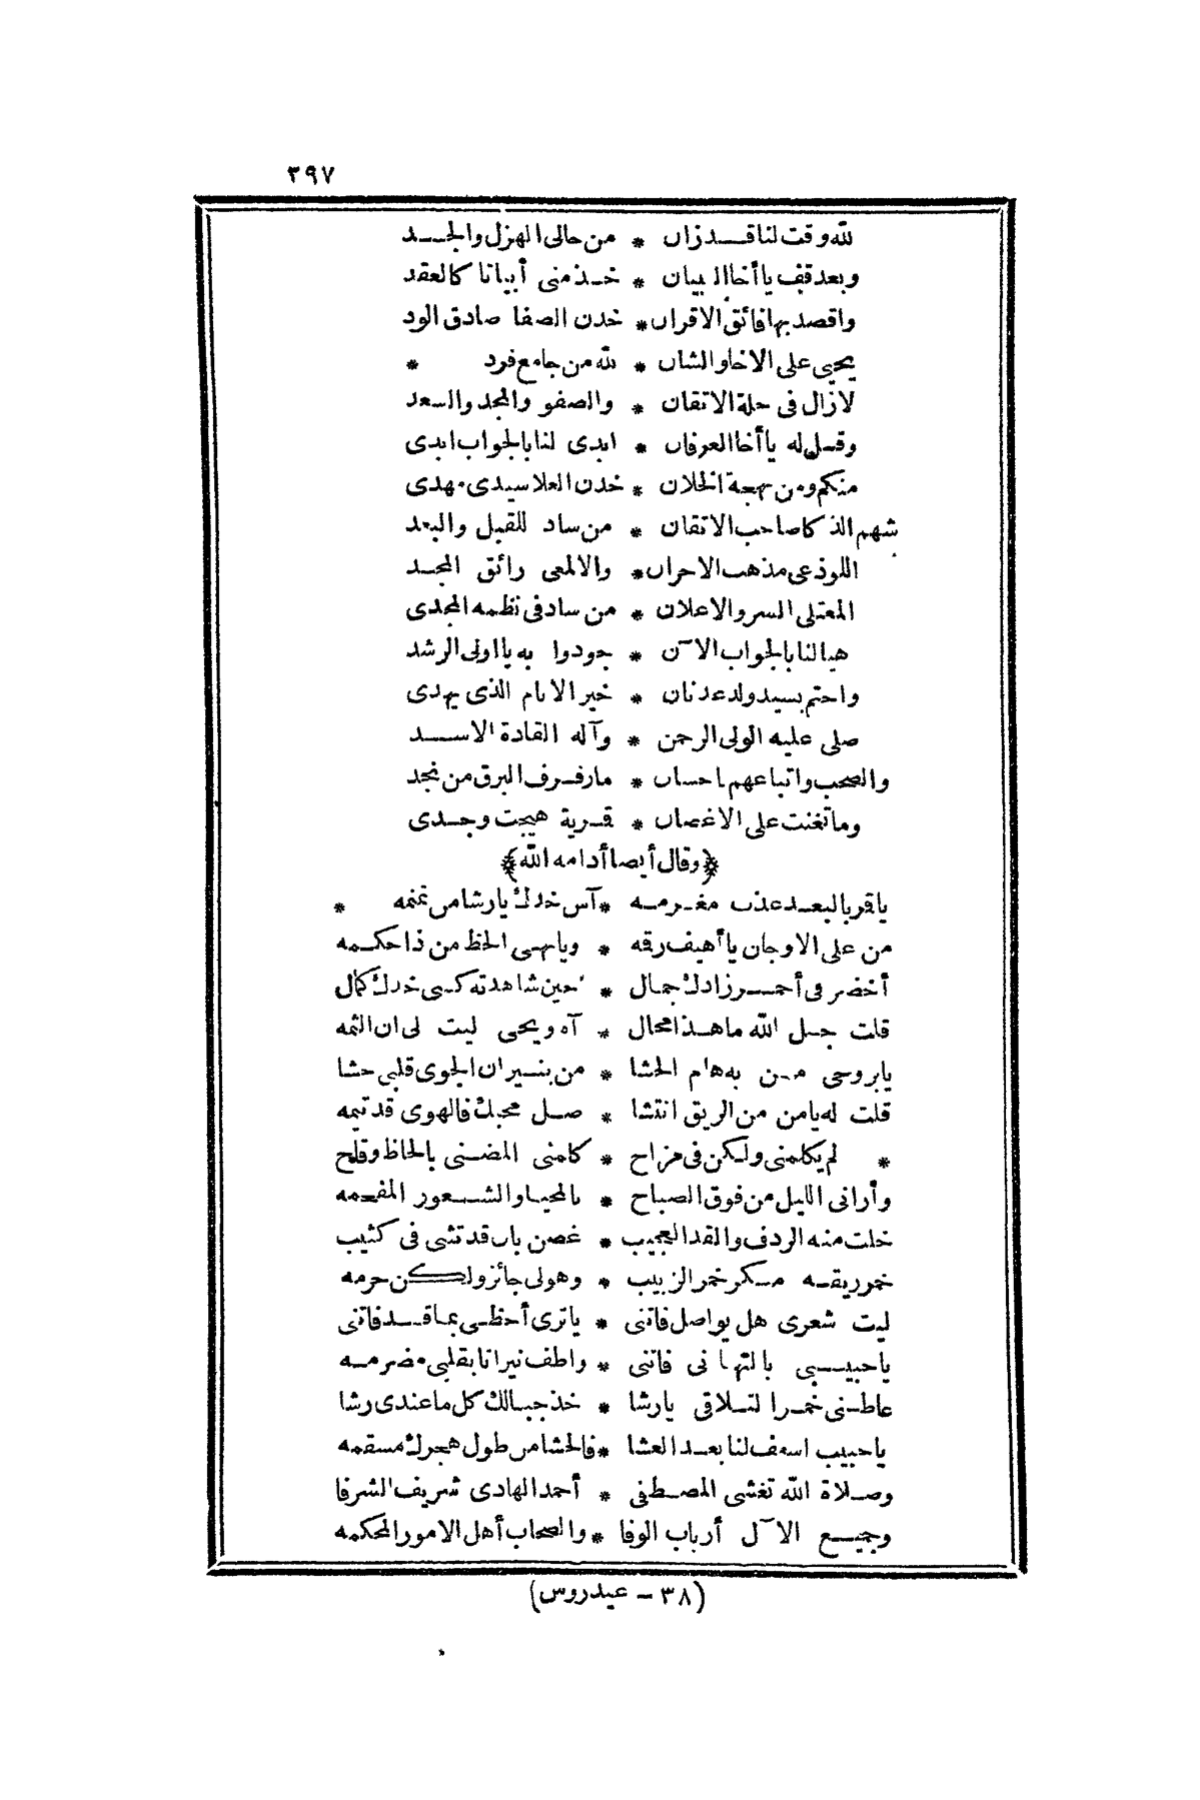 ٢٩٧
لله وقت لنا قد زان * من حالى الهزل والجد
وبعد قف يا أخا البيان * خذ منى أبيانا كالعقد
واقصد بها فائق الاقران * خدن الصفا صادق الود
يحيى على الاخا والشان * لله من جامع فرد *
لا زال فى حلة الاتقان * والصفو والمجد والسعد
وقل له يا أخا العرفان * ابدى لنا بالجواب ابدى
منكم ومن بهجة الخلان * خدن العلا سيدى مهدى
شهم الذكا صاحب الاتقان * من ساد للقبل والبعد
اللوذعى مذهب الاحزان * والالمعى رائق المجد
المعتلى السر والاعلان * من ساد فى نظمه المجدى
هيا لنا بالجواب الآن * جودوا به يا اولى الرشد
واختم بسيد ولد عدنان * خير الانام الذى يهدى
صلى عليه الولى الرحمن * وآله القادة الاسد
والصحب واتباعهم باحسان * ما رفرف البرق من نجد
وما تغنت على الاغصان * قمرية هيجت وجدى
﴿وقال أيضا أدامه الله﴾
يا قمر بالبعد عذب مغرمه * آس خدك يا رشا من نمنمه *
من على الاوجان يا أهيف رقه * ويا بهى الحظ من ذا حكمه
أخضر فى أحمر زادك جمال * حين شاهدته كسى خدك كمال
قلت جل الله ما هذا محال * آه ويحى ليت لى ان الثمه
يا بروحى من به هام الحشا * من بنيران الجوى قلبى حشا
قلت له يا من من الريق انتشا * صل محبك فالهوى قد تيمه
* لم يكلمنى ولكن فى مزاح * كلمنى المضنى بالحاظ وقاح
وأرانى الليل من فوق الصباح * بالمحيا والشعور المفحمه
خلت منه الردف والقد العجيب * غصن بان قد تثنى فى كثيب
خمر ريقه مسكر خمر الزبيب * وهو لى جائز ولكن حرمه
ليت شعرى هل يواصل فاتنى * يا ترى أحظى بما قد فاتنى
يا حبيبى بالتهانى فاتنى * واطف نيرانا بقلبى مضرمه
عاطنى خمرا لتلاقى يا رشا * خذ جبالك كل ما عندى رشا
يا حبيب اسعف لنا بعد العشا * فالحشا من طول هجرك مسقمه
وصلاة الله تغشى المصطفى * أحمد الهادى شريف الشرفا
وجميع الآل أرباب الوفا * والصحاب أهل الامور المحكمه
(٣٨ - عيدروس)